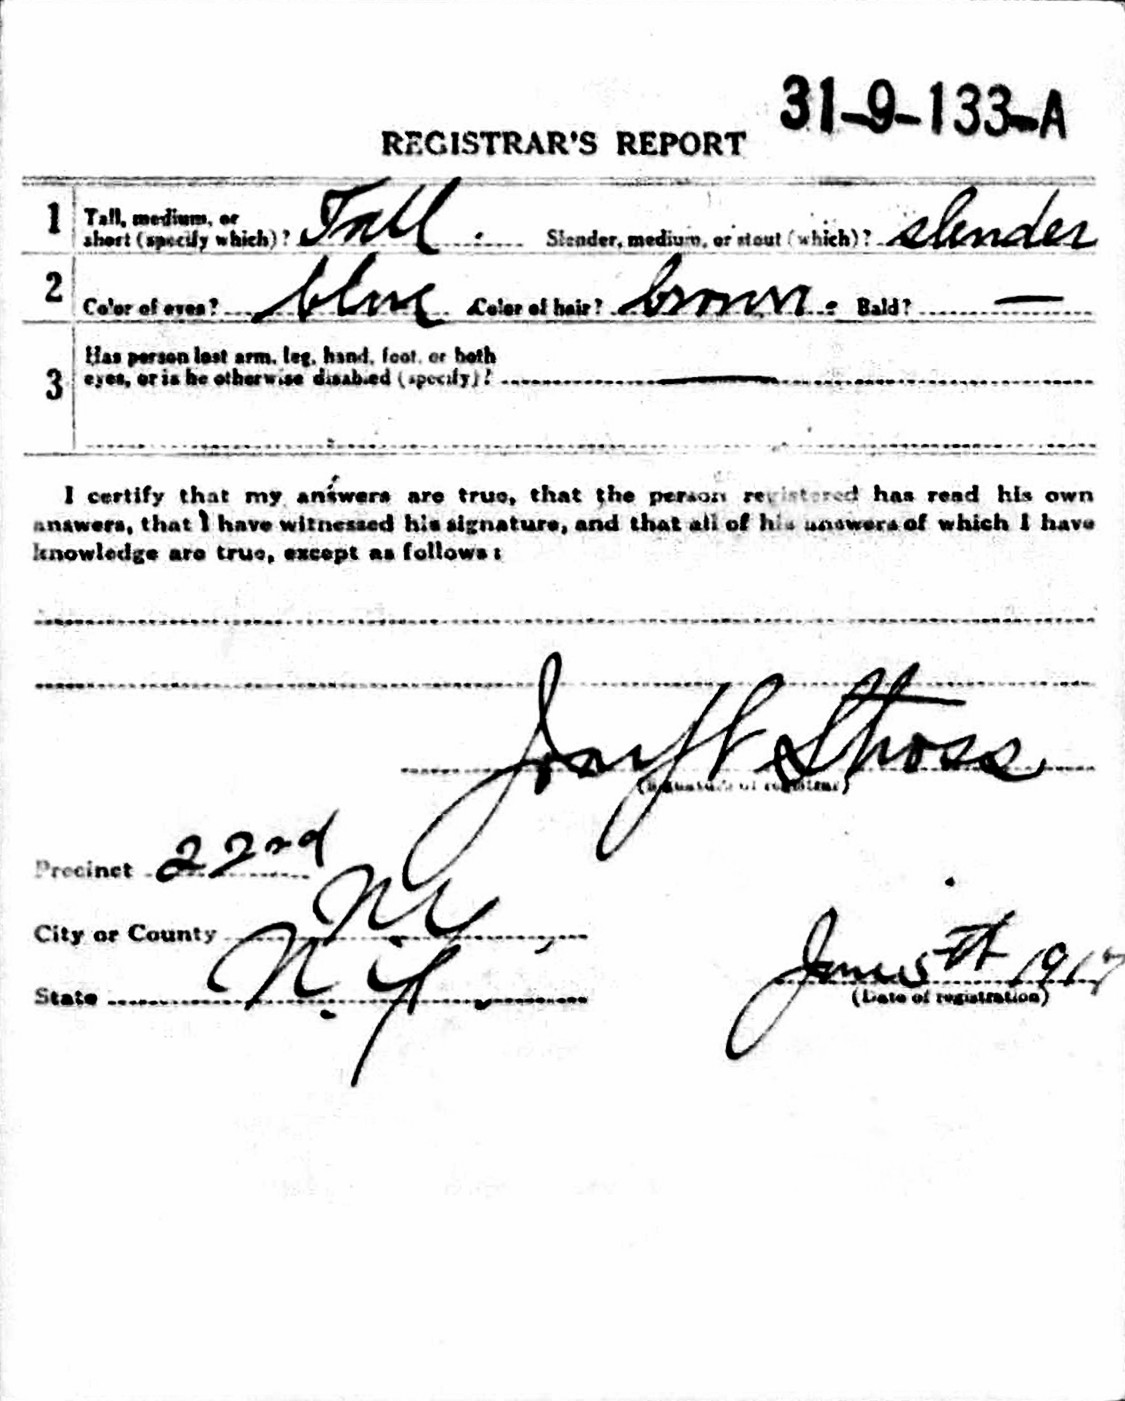 31-9-133-A
REGISTRAR'S REPORT
1 Tall, medium, or short (specify which)? Tall. Slender, medium, or stout (which)? slender
2 Color of eyes? blue Color of hair? brown. Bald? —
3 Has person lost arm, leg, hand, foot, or both
eyes, or is he otherwise disabled (specify)? —
I certify that my answers are true, that the person registered has read his own
answers, that I have witnessed his signature, and that all of his answers of which I have
knowledge are true, except as follows:
Stross
(Signature of registrar)
Precinct 22nd
City or County N.Y.
State N.Y.
June 5th 1917
(Date of registration)